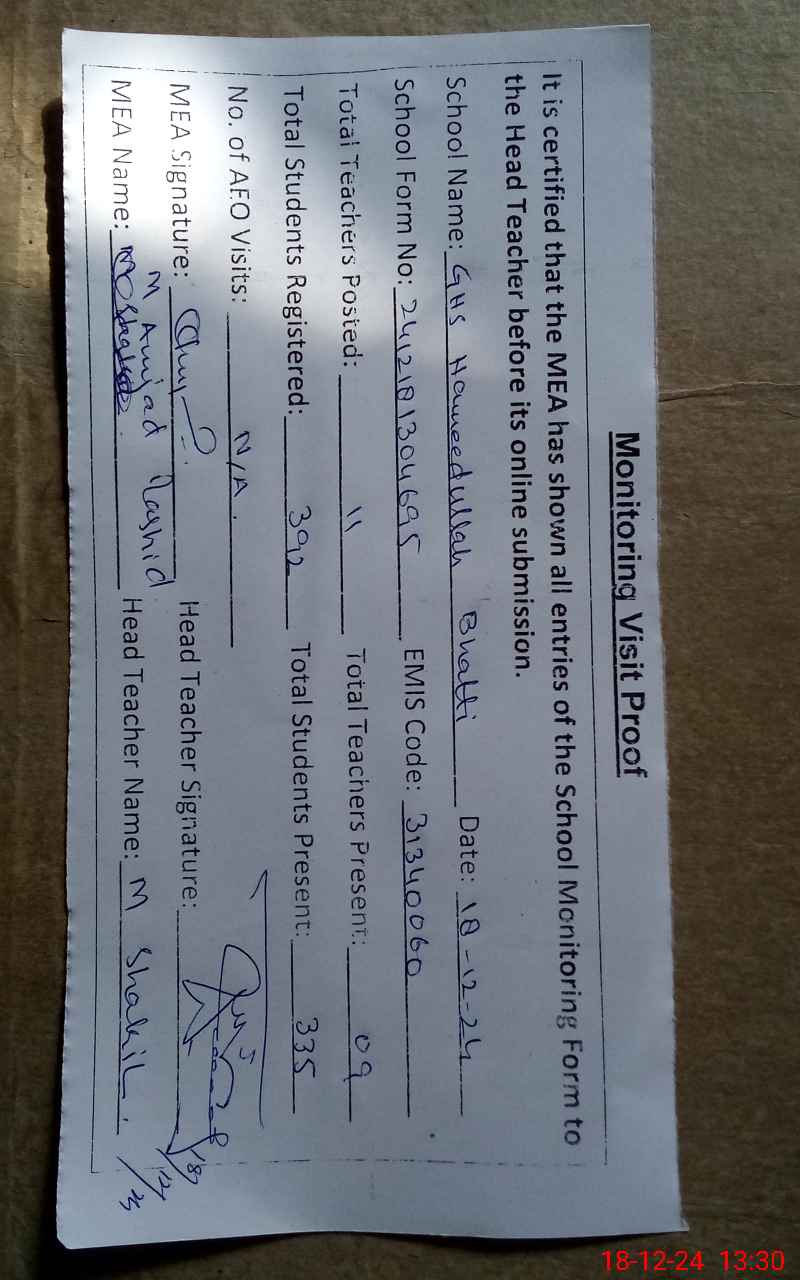 Monitoring Visit Proof
It is certified that the MEA has shown all entries of the School Monitoring Form to
the Head Teacher before its online submission.
School Name: GHS Hameedullah Bhatti Date: 18-12-24
School Form No: 2412181304695 EMIS Code: 31340060
Total Teachers Posted: 11 Total Teachers Present: 09
Total Students Registered: 392 Total Students Present: 335
No. of AEO Visits: N/A.
MEA Signature: Head Teacher Signature:
M Amjad Rashid
MEA Name: Head Teacher Name: M Shakil.
18-12-24 13:30